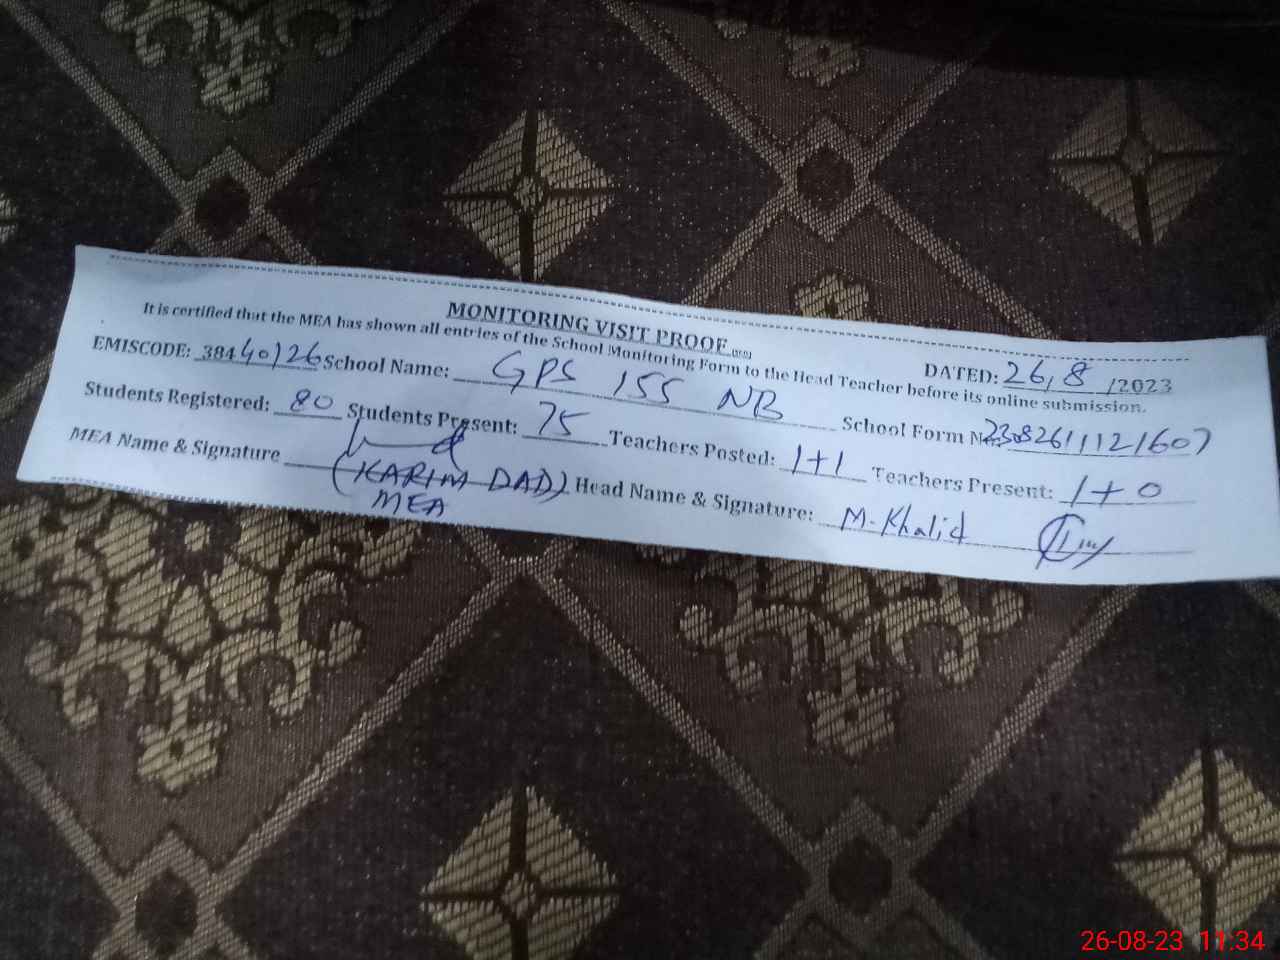 MONITORING VISIT PROOF
It is certified that the MEA has shown all entries of the School Monitoring Form to the Head Teacher before its online submission.
DATED: 26/8/2023
EMISCODE: 38440126 School Name: GPS 155 NB School Form No: 2308261121607
Students Registered: 80 Students Present: 75 Teachers Posted: 1+1 Teachers Present: 1+0
MEA Name & Signature (KARIM DAD) Head Name & Signature: M. Khalid
MEA
26-08-23 11:34